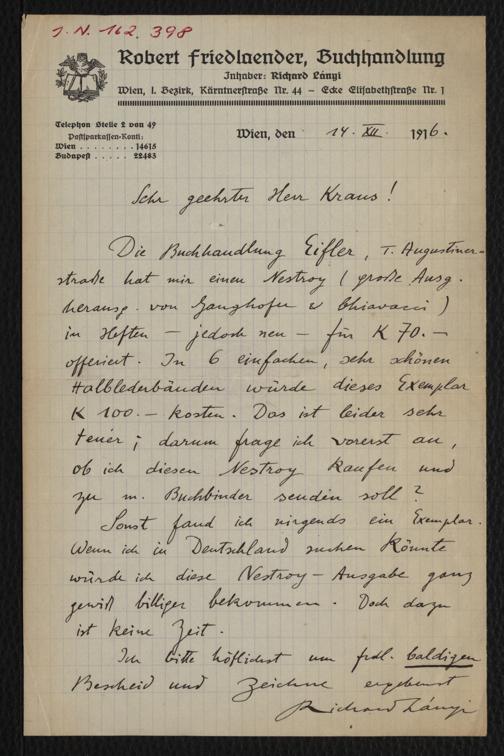 J. N. 162.398
Robert Friedlaender, Buchhandlung
Inhaber: Richard Lányi
Wien, I. Bezirk, Kärntnerstraße Nr. 44 – Ecke Elisabethstraße Nr. 1
Telephon Stelle 2 von 49
Postsparkassen-Konti:
Wien . . . . . . . . 14615
Budapest . . . . . 22483
Wien, den 14. XII. 1916.
Sehr geehrter Herr Kraus!
Die Buchhandlung Eifler, I. Augustiner-
straße hat mir einen Nestroy (große Ausg.
herausg. von Ganghofer u Chiavacci)
in Heften – jedoch neu – für K 70.–
offeriert. In 6 einfachen, sehr schönen
Halblederbänden würde dieses Exemplar
K 100.– kosten. Das ist leider sehr
teuer; darum frage ich vorerst an,
ob ich diesen Nestroy kaufen und
zu m. Buchbinder senden soll?
Sonst fand ich nirgends ein Exemplar.
Wenn ich in Deutschland suchen könnte
würde ich diese Nestroy-Ausgabe ganz
gewiß billiger bekommen. Doch dazu
ist keine Zeit.
Ich bitte höflichst um frdl. baldigen
Bescheid und zeichne ergebenst
Richard Lányi